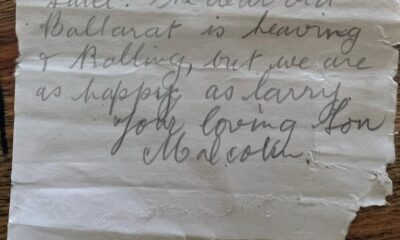 dear old
Ballarat is heaving
& Rolling, but we are
as happy as larry.
Your loving Son
Malcolm.